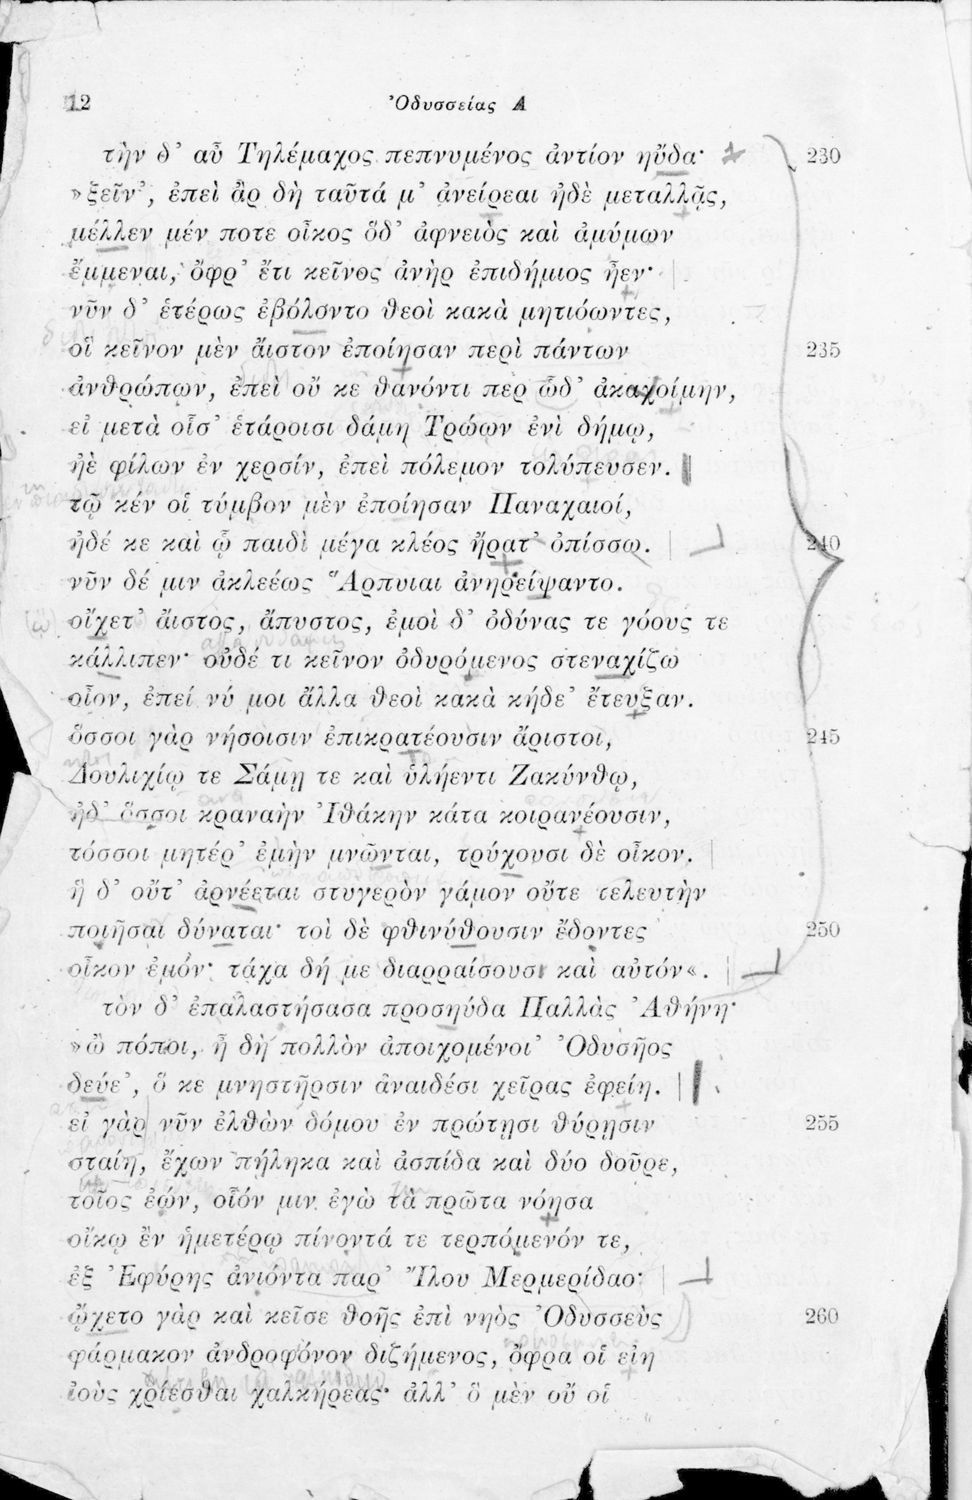 12
Ὀδυσσείας Α
τὴν δ’ αὖ Τηλέμαχος πεπνυμένος ἀντίον ηὔδα·
230
»ξεῖν’, ἐπεὶ ἂρ δὴ ταῦτά μ’ ἀνείρεαι ἠδὲ μεταλλᾷς,
μέλλεν μέν ποτε οἶκος ὅδ’ ἀφνειὸς καὶ ἀμύμων
ἔμμεναι, ὄφρ’ ἔτι κεῖνος ἀνὴρ ἐπιδήμιος ἦεν·
νῦν δ’ ἑτέρως ἐβόλοντο θεοὶ κακὰ μητιόωντες,
οἳ κεῖνον μὲν ἄιστον ἐποίησαν περὶ πάντων
235
ἀνθρώπων, ἐπεὶ οὔ κε θανόντι περ ὧδ’ ἀκαχοίμην,
εἰ μετὰ οἷσ’ ἑτάροισι δάμη Τρώων ἐνὶ δήμῳ,
ἠὲ φίλων ἐν χερσίν, ἐπεὶ πόλεμον τολύπευσεν.
τῷ κέν οἱ τύμβον μὲν ἐποίησαν Παναχαιοί,
ἠδέ κε καὶ ᾧ παιδὶ μέγα κλέος ἤρατ’ ὀπίσσω.
240
νῦν δέ μιν ἀκλεέως Ἅρπυιαι ἀνηρείψαντο.
οἴχετ’ ἄιστος, ἄπυστος, ἐμοὶ δ’ ὀδύνας τε γόους τε
κάλλιπεν· οὐδέ τι κεῖνον ὀδυρόμενος στεναχίζω
οἶον, ἐπεί νύ μοι ἄλλα θεοὶ κακὰ κήδε’ ἔτευξαν.
ὅσσοι γὰρ νήσοισιν ἐπικρατέουσιν ἄριστοι,
245
Δουλιχίῳ τε Σάμῃ τε καὶ ὑλήεντι Ζακύνθῳ,
ἠδ’ ὅσσοι κραναὴν Ἰθάκην κάτα κοιρανέουσιν,
τόσσοι μητέρ’ ἐμὴν μνῶνται, τρύχουσι δὲ οἶκον.
ἣ δ’ οὔτ’ ἀρνέεται στυγερὸν γάμον οὔτε τελευτὴν
ποιῆσαι δύναται· τοὶ δὲ φθινύθουσιν ἔδοντες
250
οἶκον ἐμόν· τάχα δή με διαρραίσουσι καὶ αὐτόν«.
τὸν δ’ ἐπαλαστήσασα προσηύδα Παλλὰς Ἀθήνη·
»ὢ πόποι, ἦ δὴ πολλὸν ἀποιχομένοι’ Ὀδυσῆος
δεύε’, ὅ κε μνηστῆρσιν ἀναιδέσι χεῖρας ἐφείη.
εἰ γὰρ νῦν ἐλθὼν δόμου ἐν πρώτῃσι θύρῃσιν
255
σταίη, ἔχων πήληκα καὶ ἀσπίδα καὶ δύο δοῦρε,
τοῖος ἐών, οἷόν μιν ἐγὼ τὰ πρῶτα νόησα
οἴκῳ ἐν ἡμετέρῳ πίνοντά τε τερπόμενόν τε,
ἐξ Ἐφύρης ἀνιόντα παρ’ Ἴλου Μερμερίδαο·
ᾤχετο γὰρ καὶ κεῖσε θοῆς ἐπὶ νηὸς Ὀδυσσεὺς
260
φάρμακον ἀνδροφόνον διζήμενος, ὄφρα οἱ εἴη
ἰοὺς χρίεσθαι χαλκήρεας· ἀλλ’ ὃ μὲν οὔ οἱ